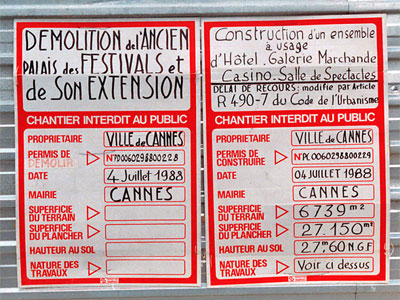 DEMOLITION de l'ANCIEN
PALAIS des FESTIVALS et
de SON EXTENSION
CHANTIER INTERDIT AU PUBLIC
PROPRIETAIRE VILLE de CANNES
PERMIS DE DEMOLIR N°PD0060298800228
DATE 4 Juillet 1988
MAIRIE CANNES
SUPERFICIE DU TERRAIN
SUPERFICIE DU PLANCHER
HAUTEUR AU SOL
NATURE DES TRAVAUX
Construction d'un ensemble
à usage
d'Hôtel. Galerie Marchande
Casino. Salle de Spectacles
DELAI DE RECOURS: modifié par Article
R 490-7 du Code de l'Urbanisme
CHANTIER INTERDIT AU PUBLIC
PROPRIETAIRE VILLE de CANNES
PERMIS DE CONSTRUIRE N°PC0060298800229
DATE 04 JUILLET 1988
MAIRIE CANNES
SUPERFICIE DU TERRAIN 6739 m²
SUPERFICIE DU PLANCHER 27.150 m²
HAUTEUR AU SOL 27m60 N.G.F
NATURE DES TRAVAUX Voir ci dessus